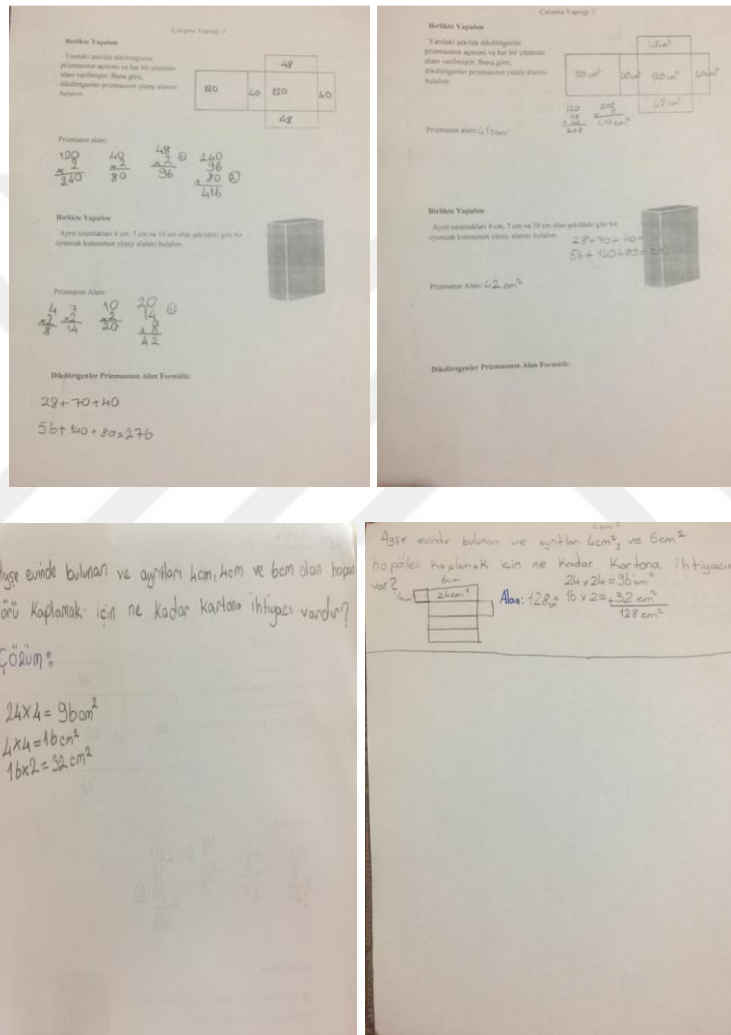 Çalışma Yaprağı-
Birlikte Yapalım
Yandaki şekilde dikdörtgenler
prizmasının açınımı ve her bir yüzünün
alanı verilmiştir. Buna göre,
dikdörtgenler prizmasının yüzey alanını
bulalım.
48
120 40 120 40
48
Prizmanın alanı:
120 40 48 240
x 2 x 2 x 2 96
240 80 96 + 80
416
Birlikte Yapalım
Ayrıt uzunlukları 4 cm, 7 cm ve 10 cm olan şekildeki gibi bir
oyuncak kutusunun yüzey alanını bulalım.
Prizmanın Alanı:
4 7 10 20
x2 x2 x2 14
8 14 20 + 8
42
Dikdörtgenler Prizmasının Alan Formülü:
28+70+40
56+140+80=276
Çalışma Yaprağı-
Birlikte Yapalım
Yandaki şekilde dikdörtgenler
prizmasının açınımı ve her bir yüzünün
alanı verilmiştir. Buna göre,
dikdörtgenler prizmasının yüzey alanını
bulalım.
48cm²
40cm² 120cm² 40cm²
48cm²
120 208
48
+ 40
208
Prizmanın alanı:
Birlikte Yapalım
Ayrıt uzunlukları 4 cm, 7 cm ve 10 cm olan şekildeki gibi bir
oyuncak kutusunun yüzey alanını bulalım.
28+70+40=
56+140+80=
Prizmanın Alanı: 42 cm²
Dikdörtgenler Prizmasının Alan Formülü:
evinde bulunan ve ayrıtları 4cm, 4cm ve 6cm olan
kaplamak için ne kadar kartona ihtiyacı vardır?
Çözüm:
24x4=96cm²
4x4=16cm²
16x2=32cm²
Ayşe evinde bulunan ve ayrıtları 4cm², ve 6cm²
hoparlörü kaplamak için ne kadar kartona ihtiyacı
var?
6cm
4cm 24cm²
Alan: 128
24x24=96cm²
16x2=+32 cm²
128 cm²